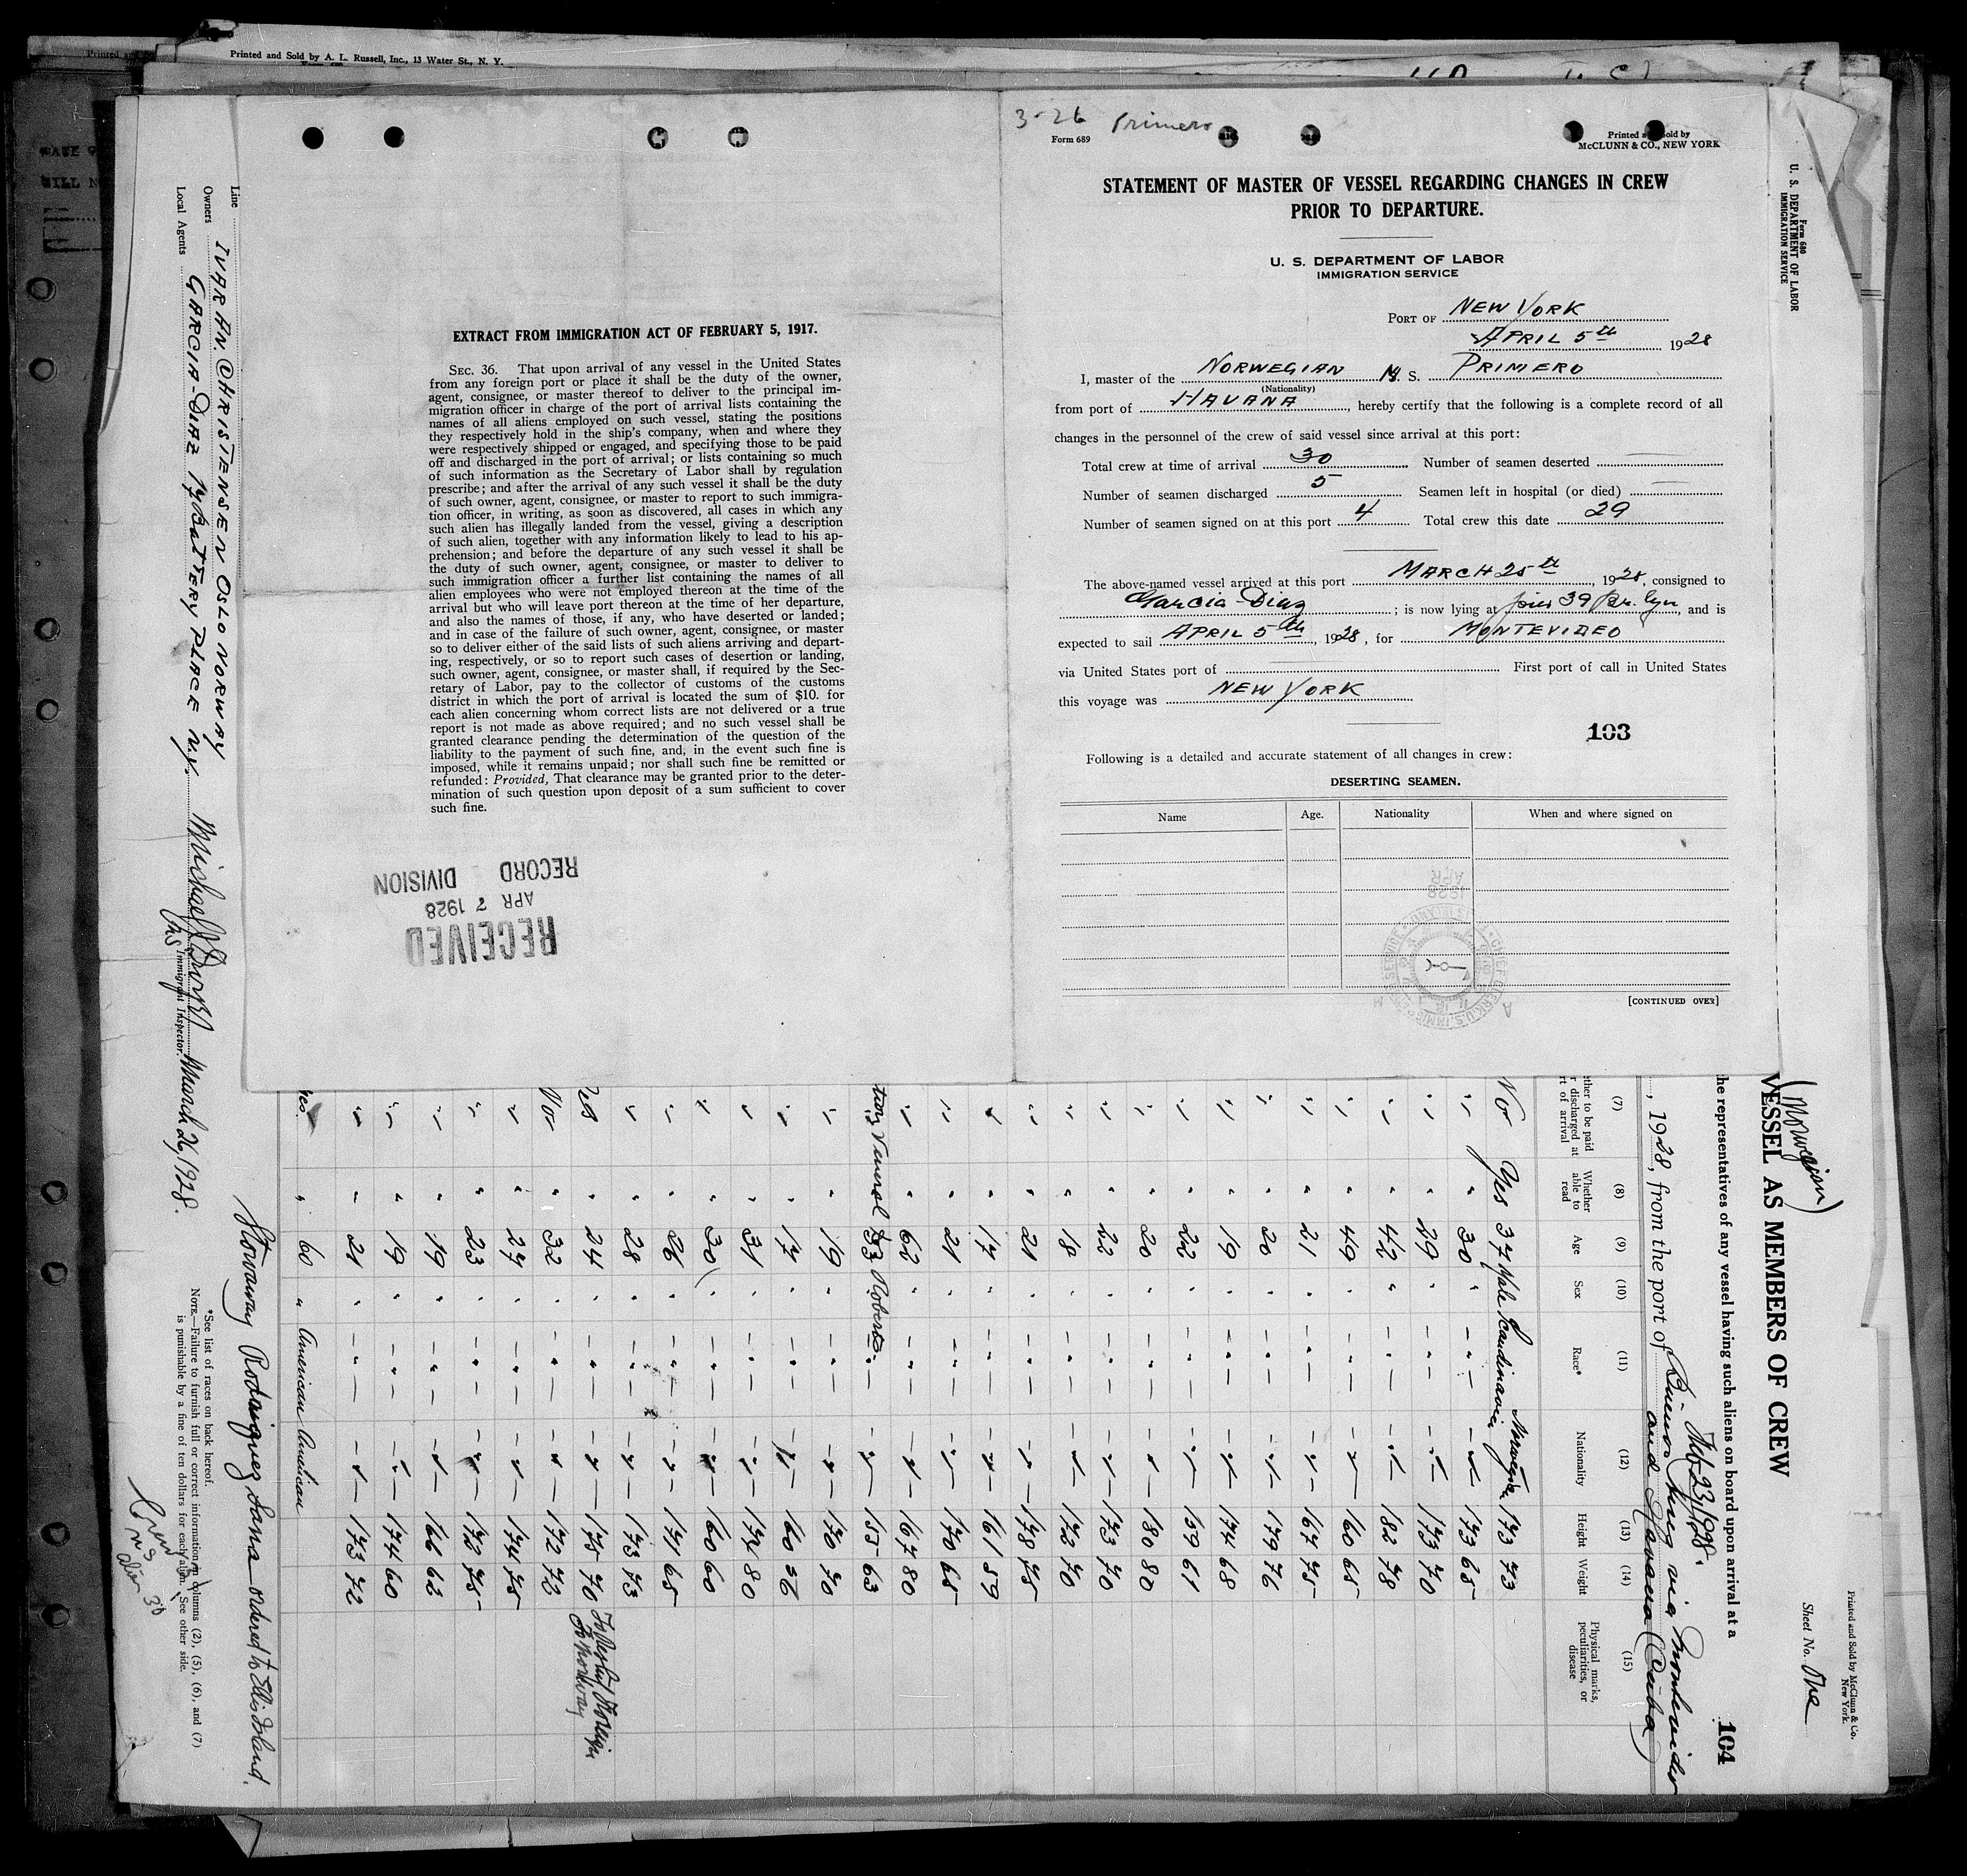 Printed and Sold by A. L. Russell, Inc., 13 Water St., N. Y.
EXTRACT FROM IMMIGRATION ACT OF FEBRUARY 5, 1917.
SEC. 36. That upon arrival of any vessel in the United States
from any foreign port or place it shall be the duty of the owner,
agent, consignee, or master thereof to deliver to the principal im-
migration officer in charge of the port of arrival lists containing the
names of all aliens employed on such vessel, stating the positions
they respectively hold in the ship's company, when and where they
were respectively shipped or engaged, and specifying those to be paid
off and discharged in the port of arrival; or lists containing so much
of such information as the Secretary of Labor shall by regulation
prescribe; and after the arrival of any such vessel it shall be the duty
of such owner, agent, consignee, or master to report to such immigra-
tion officer, in writing, as soon as discovered, all cases in which any
such alien has illegally landed from the vessel, giving a description
of such alien, together with any information likely to lead to his ap-
prehension; and before the departure of any such vessel it shall be
the duty of such owner, agent, consignee, or master to deliver to
such immigration officer a further list containing the names of all
alien employees who were not employed thereon at the time of the
arrival but who will leave port thereon at the time of her departure,
and also the names of those, if any, who have deserted or landed;
and in case of the failure of such owner, agent, consignee, or master
so to deliver either of the said lists of such aliens arriving and depart-
ing, respectively, or so to report such cases of desertion or landing,
such owner, agent, consignee, or master shall, if required by the Sec-
retary of Labor, pay to the collector of customs of the customs
district in which the port of arrival is located the sum of $10. for
each alien concerning whom correct lists are not delivered or a true
report is not made as above required; and no such vessel shall be
granted clearance pending the determination of the question of the
liability to the payment of such fine, and, in the event such fine is
imposed, while it remains unpaid; nor shall such fine be remitted or
refunded: Provided, That clearance may be granted prior to the deter-
mination of such question upon deposit of a sum sufficient to cover
such fine.
RECEIVED
APR 7 1928
RECORD DIVISION
3-26 Primero
Form 689
Printed and Sold by
McCLUNN & CO., NEW YORK
STATEMENT OF MASTER OF VESSEL REGARDING CHANGES IN CREW
PRIOR TO DEPARTURE.
U. S. DEPARTMENT OF LABOR
IMMIGRATION SERVICE
PORT OF NEW YORK
APRIL 5th 1928
I, master of the NORWEGIAN M. S. PRIMERO
(Nationality)
from port of HAVANA, hereby certify that the following is a complete record of all
changes in the personnel of the crew of said vessel since arrival at this port:
Total crew at time of arrival 30 Number of seamen deserted
Number of seamen discharged 5 Seamen left in hospital (or died)
Number of seamen signed on at this port 4 Total crew this date 29
The above-named vessel arrived at this port MARCH 25th, 1928, consigned to
Garcia-Diaz; is now lying at pier 39 Br. lyn, and is
expected to sail APRIL 5th, 1928, for MONTEVIDEO
via United States port of First port of call in United States
this voyage was NEW YORK
103
Following is a detailed and accurate statement of all changes in crew:
DESERTING SEAMEN.
Name Age. Nationality When and where signed on
[CONTINUED OVER]
Form 680
U. S. DEPARTMENT OF LABOR
IMMIGRATION SERVICE
Printed and Sold by McClunn & Co.
New York.
Sheet No. One
(Norwegian)
VESSEL AS MEMBERS OF CREW
104
the representatives of any vessel having such aliens on board upon arrival at a
Feb 23/1928.
, 1928, from the port of Buenos Aires via Montevideo
and Havana (Cuba)
(7) (8) (9) (10) (11) (12) (13) (14) (15)
Whether able to read
Age
Sex
Race*
Nationality
Height
Weight
Physical marks, peculiarities, or disease
No Yes 37 Male Scandinavian Norwegian 173 73
30 173 65
29 173 70
42 182 78
49 160 65
21 167 75
20 179 76
19 174 68
22 159 61
20 180 80
22 173 70
18 172 70
21 178 75
17 161 59
21 170 65
62 167 80
53 155 63
19 170 70
17 160 56
31 174 80
30 160 60
26 171 65
28 173 73
Yes 24 175 70
No 32 172 72
27 174 75
23 172 75
19 166 62
19 174 60
21 173 72
Yes 60 American
Stowaway Rodriguez ordered to Ellis Island.
Line
Owners IVAR AN. CHRISTENSEN OSLO NORWAY
Local Agents GARCIA-DIAZ 17 BATTERY PLACE N.Y.
Immigrant Inspector. March 26, 1928.
*See list of races on back hereof.
NOTE.—Failure to furnish full or correct information in columns (2), (5), (6), and (7)
is punishable by a fine of ten dollars for each alien. See other side.